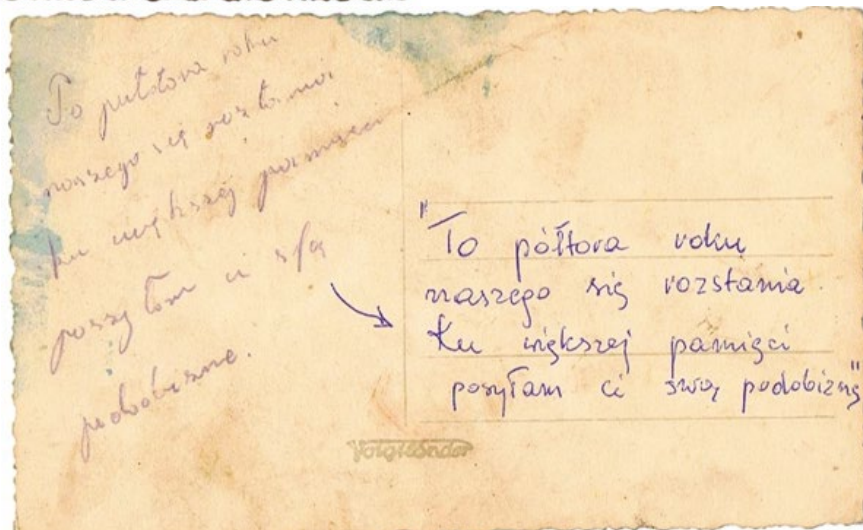 To pułtora roku
naszego się rozstania
ku większej pamięci
posyłam ci sfą
podobizne.
"To półtora roku
naszego się rozstania
Ku większej pamięci
posyłam ci swoją podobiznę"
Voigtländer